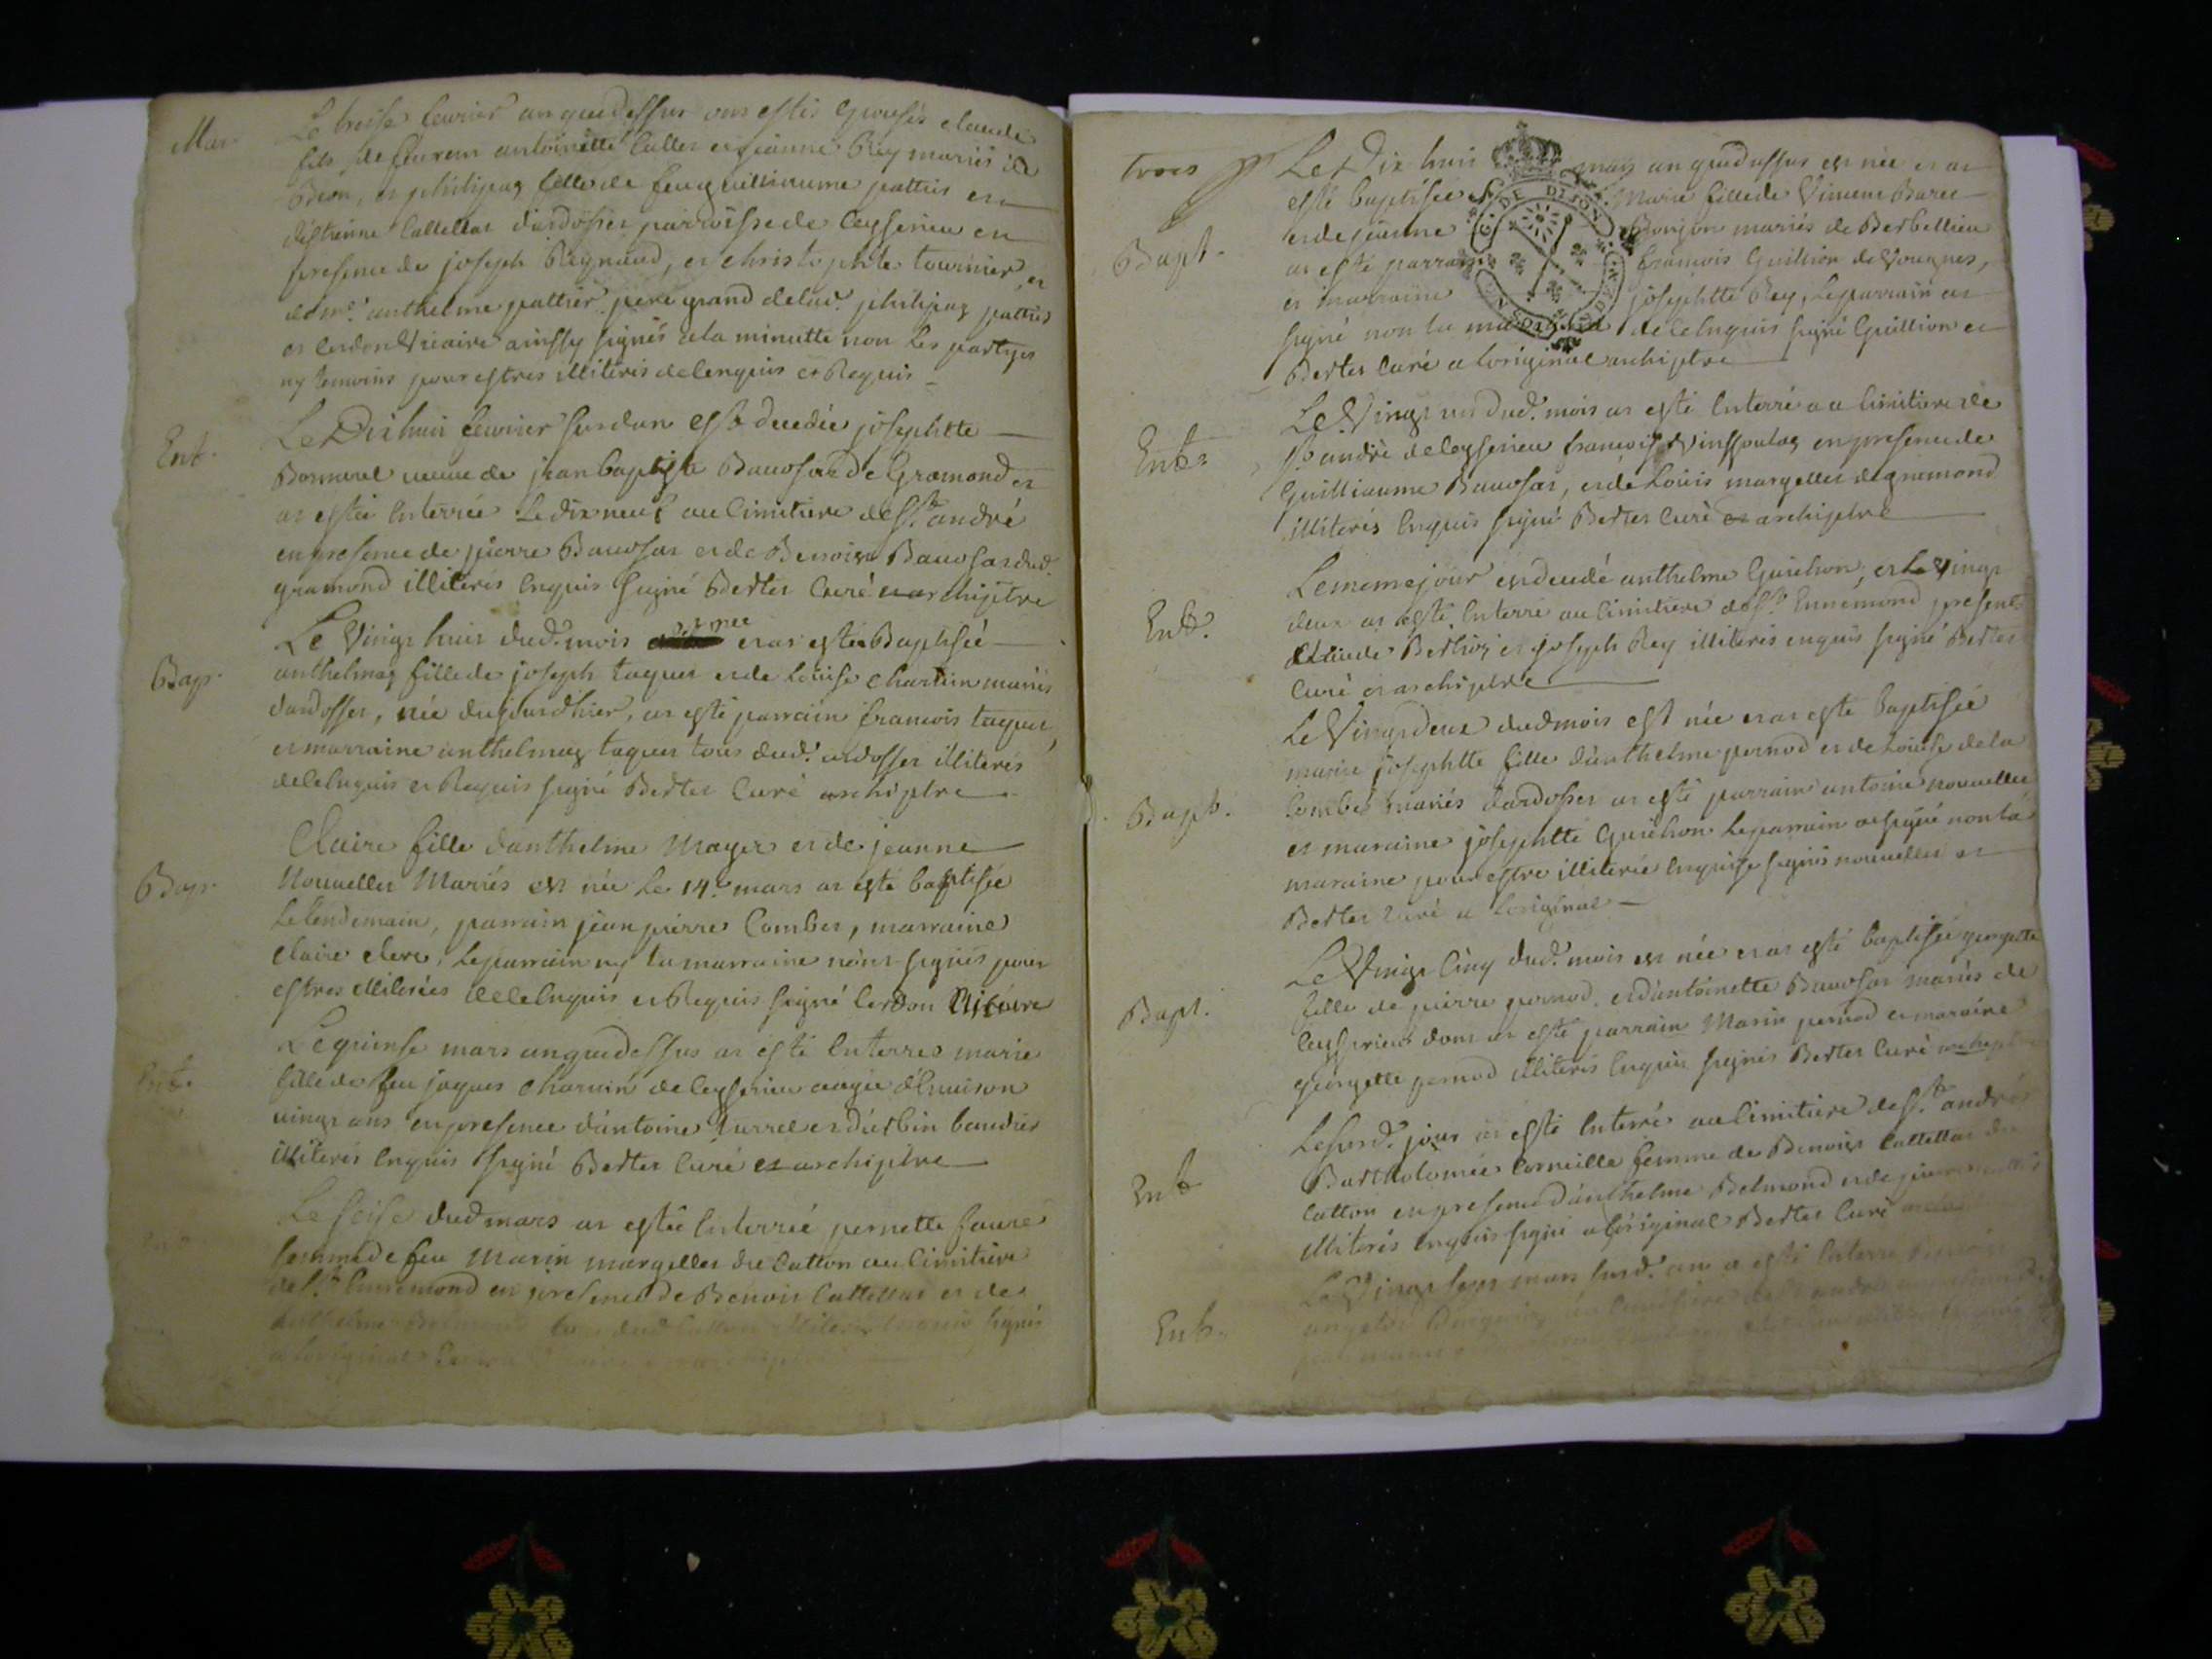 Mar. Le treise fevrier an quedessus ont estés Epousés claude
fils de feu rem antoinette Caller et jeanne Rey mariés de
Beon, et philipaz fille de feu guilliaume pattier et
d'estienne Cattellar d'ardosset parroisse de Ceyserieu en
presence de joseph Reynaud, et christophle tournier, et
de mr. anthelme pattier pere grand de lad. philipaz pattier
et Cerdon Vicaire ainssy signés a la minutte non les partyes
ny temoins pour estres illiterés de ce enquis et Requis
Ent. Le Dix huit fevrier susd. an est decedée josephtte
Bonnerel veuve de jean baptiste Bavosar de Gramond et
at estée Enterrée Le dix neuf au Cimitiere de St. andré
en presence de pierre Bavosar et de Benoist Bavosar dud.
gramond illiterés Enquis signé Berter Curé et archiptre
Bap. Le Vingt huit dud. mois est née et at estée Baptisée
anthelmaz fille de joseph taquet et de Louise Charvin mariés
d'ardosset, née du jourd'hier, at esté parrain francois taquet,
et marraine anthelmaz taquet tous dud. ardosset illiterés
de ce Enquis et Requis signé Berter Curé archiptre
Bap. Claire fille d'anthelme Mayer et de jeanne
Nouveller Mariés est née Le 14e. mars at esté baptisée
Le lendemain, parrain jean pierre Comber, marraine
Claire clerc, Le parrain ny la marraine n'ont signés pour
estres illiterées de ce Enquis et Requis signé Cerdon Vicaire
Ent. Le quinse mars an quedessus at esté Enterrée marie
fille de feu jaques charvin de Ceyserieu aagée d'Environ
vingt ans en presence d'antoine Turrel et d'urbin baudrer
illiterés Enquis signé Berter Curé et archiptre
Le seise dud mars at estée Enterrée pernette faure
femme de feu Marin margeller du Catton au Cimitiere
de St. Ennemond en presence de Benoit Cattellar et de
anthelme Belmond tous dud Catton illiterés Enquis signés
a l'original
trois
Le Dix huit mars an quedessus est née et at
Bapt. esté baptisée Marie fille de Vincent Baret
et de jeanne Bonjon mariés de Berbellieu
at esté parrain francois Guillion de Vongnes,
et marraine josephtte Rey, Le parrain at
signé non la marraine de ce Enquis signé Guillion et
Berter Curé a l'original archiptre
G. DE DIJON
Ent. Le Vingt un Dud. mois at esté Enterré au Cimitiere de
St. andré de Ceyserieu francois Vinssoulaz en presence de
Guilliaume Bavosar, et de Louis margeller de gramond
illiterés Enquis signé Berter Curé et archiptre
Ent. Le meme jour est decedé anthelme Guichon, et Le Vingt
deux at esté Enterré au Cimitiere de St. Ennemond presents
Claude Berthier et joseph Rey illiterés enquis signé Berter
Curé et archiptre
Bapt. Le Vingt deux dud mois est née et at esté baptisée
marie josephtte fille d'anthelme pernod et de Louise de la
Combe mariés d'ardosset at esté parrain antoine nouveller
et maraine josephtte Guichon Le parrain at signé non la
maraine pour estre illiterée Enquise signés nouveller et
Berter Curé a L'original
Bapt. Le Vingt Cinq dud. mois est née et at esté baptisée georgette
fille de pierre pernod. et d'antoinette Bavosar mariés de
Ceyserieu dont at esté parrain Marin pernod et maraine
georgette pernod illiterés Enquis signés Berter Curé archiptre
Ent. Le susd. jour at esté Enterré au Cimitiere de St. andré
Bartholomée Corneille femme de Benoist Cattellar du
Catton en presence d'anthelme Belmond et de
illiterés enquis signé a L'original Berter Curé
Ent. Le Vingt sept mars susd. an a esté Enterré